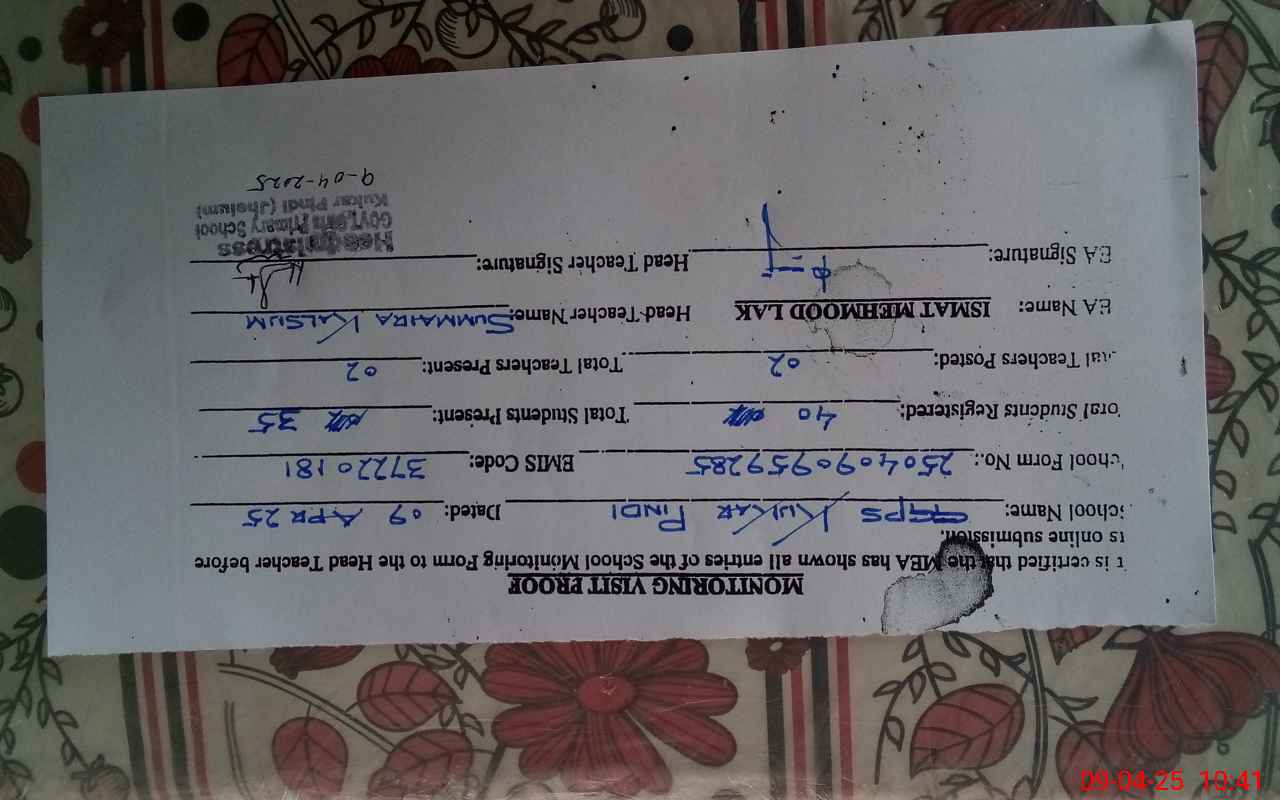 MONITORING VISIT PROOF
t is certified that the MEA has shown all entries of the School Monitoring Form to the Head Teacher before
ts online submission.
School Name: GGPS KUKAR PINDI Dated: 09 APR 25
chool Form No.: 250409095 9285 EMIS Code: 37220181
otal Students Registered: 40 Total Students Present: 35
tal Teachers Posted: 02 Total Teachers Present: 02
EA Name: ISMAT MEHMOOD LAK Head Teacher Name: SUMMAIRA KALSUM
EA Signature: Head Teacher Signature:
Headmistress
GOVT. Girls Primary School
Kukar Pindi (Jhelum)
9-04-2025
09-04-25 10:41